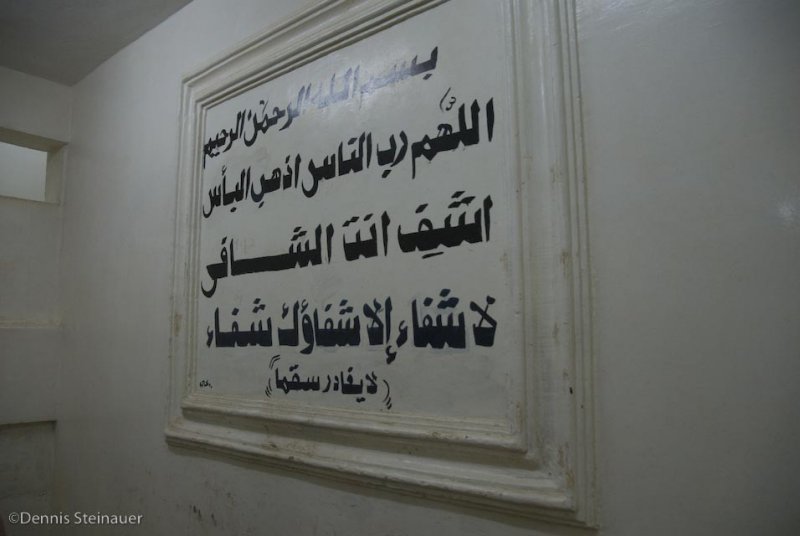 بسم الله الرحمن الرحيم
اللهم رب الناس اذهب البأس
اشفِ انت الشافى
لا شفاء إلا شفاؤك شفاء
((لا يغادر سقماً))
©Dennis Steinauer